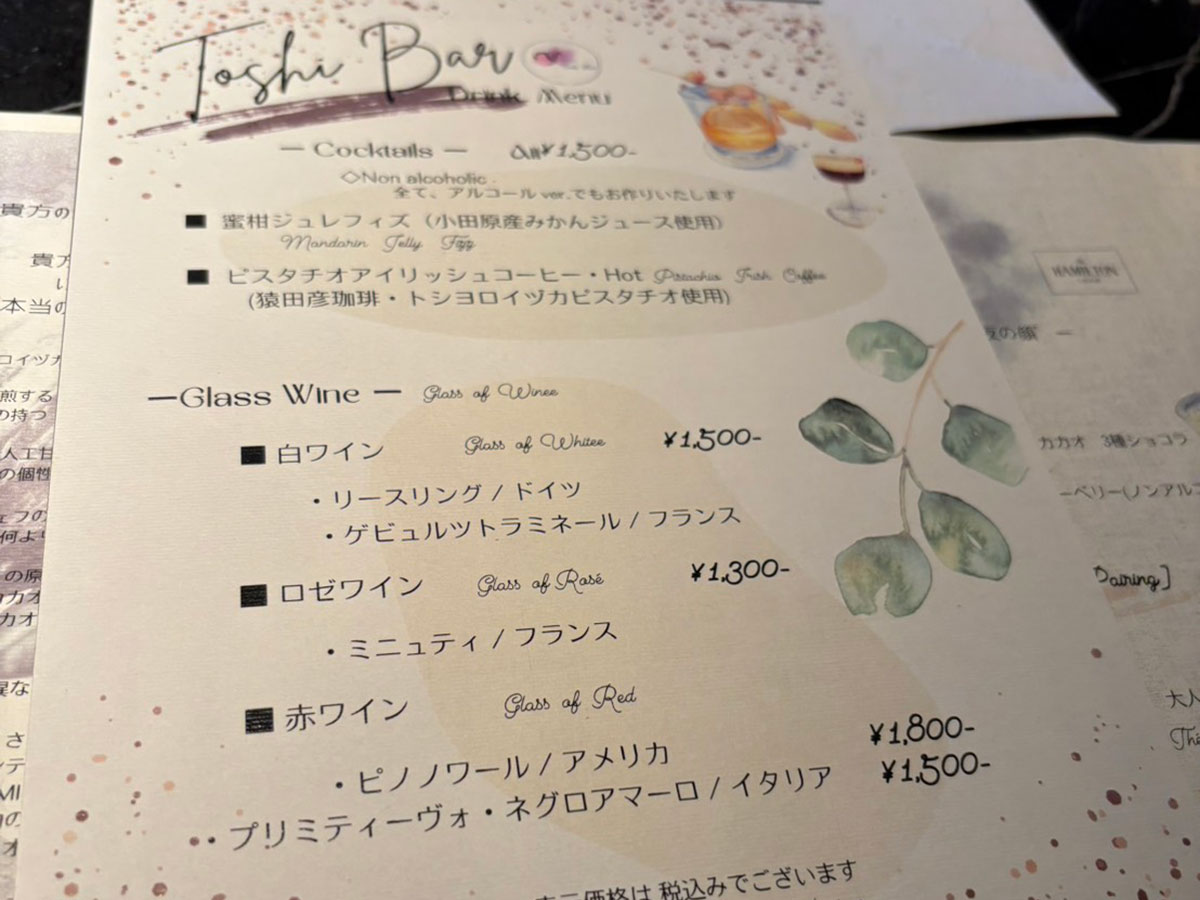 Toshi Bar
Drink Menu
— Cocktails — All¥1,500-
◇Non alcoholic
全て、アルコールver.でもお作りいたします
■ 蜜柑ジュレフィズ（小田原産みかんジュース使用）
Mandarin Jelly Fizz
■ ピスタチオアイリッシュコーヒー・Hot Pistachio Irish Coffee
(猿田彦珈琲・トシヨロイヅカピスタチオ使用)
—Glass Wine — Glass of Winee
■ 白ワイン Glass of Whitee ¥1,500-
・リースリング / ドイツ
・ゲビュルツトラミネール / フランス
■ ロゼワイン Glass of Rosé ¥1,300-
・ミニュティ / フランス
■ 赤ワイン Glass of Red
・ピノノワール / アメリカ ¥1,800-
・プリミティーヴォ・ネグロアマーロ / イタリア ¥1,500-
価格は 税込みでございます
貴方の
貴方
本当の
ロイヅカ
煎する
の持つ
人工甘
の個性
ェフの
何より
の原
カカオ
カオ
さ
HAMILTON
夜の顔 —
カカオ 3種ショコラ
ーベリー(ノンアルコ
Pairing]
大人
The